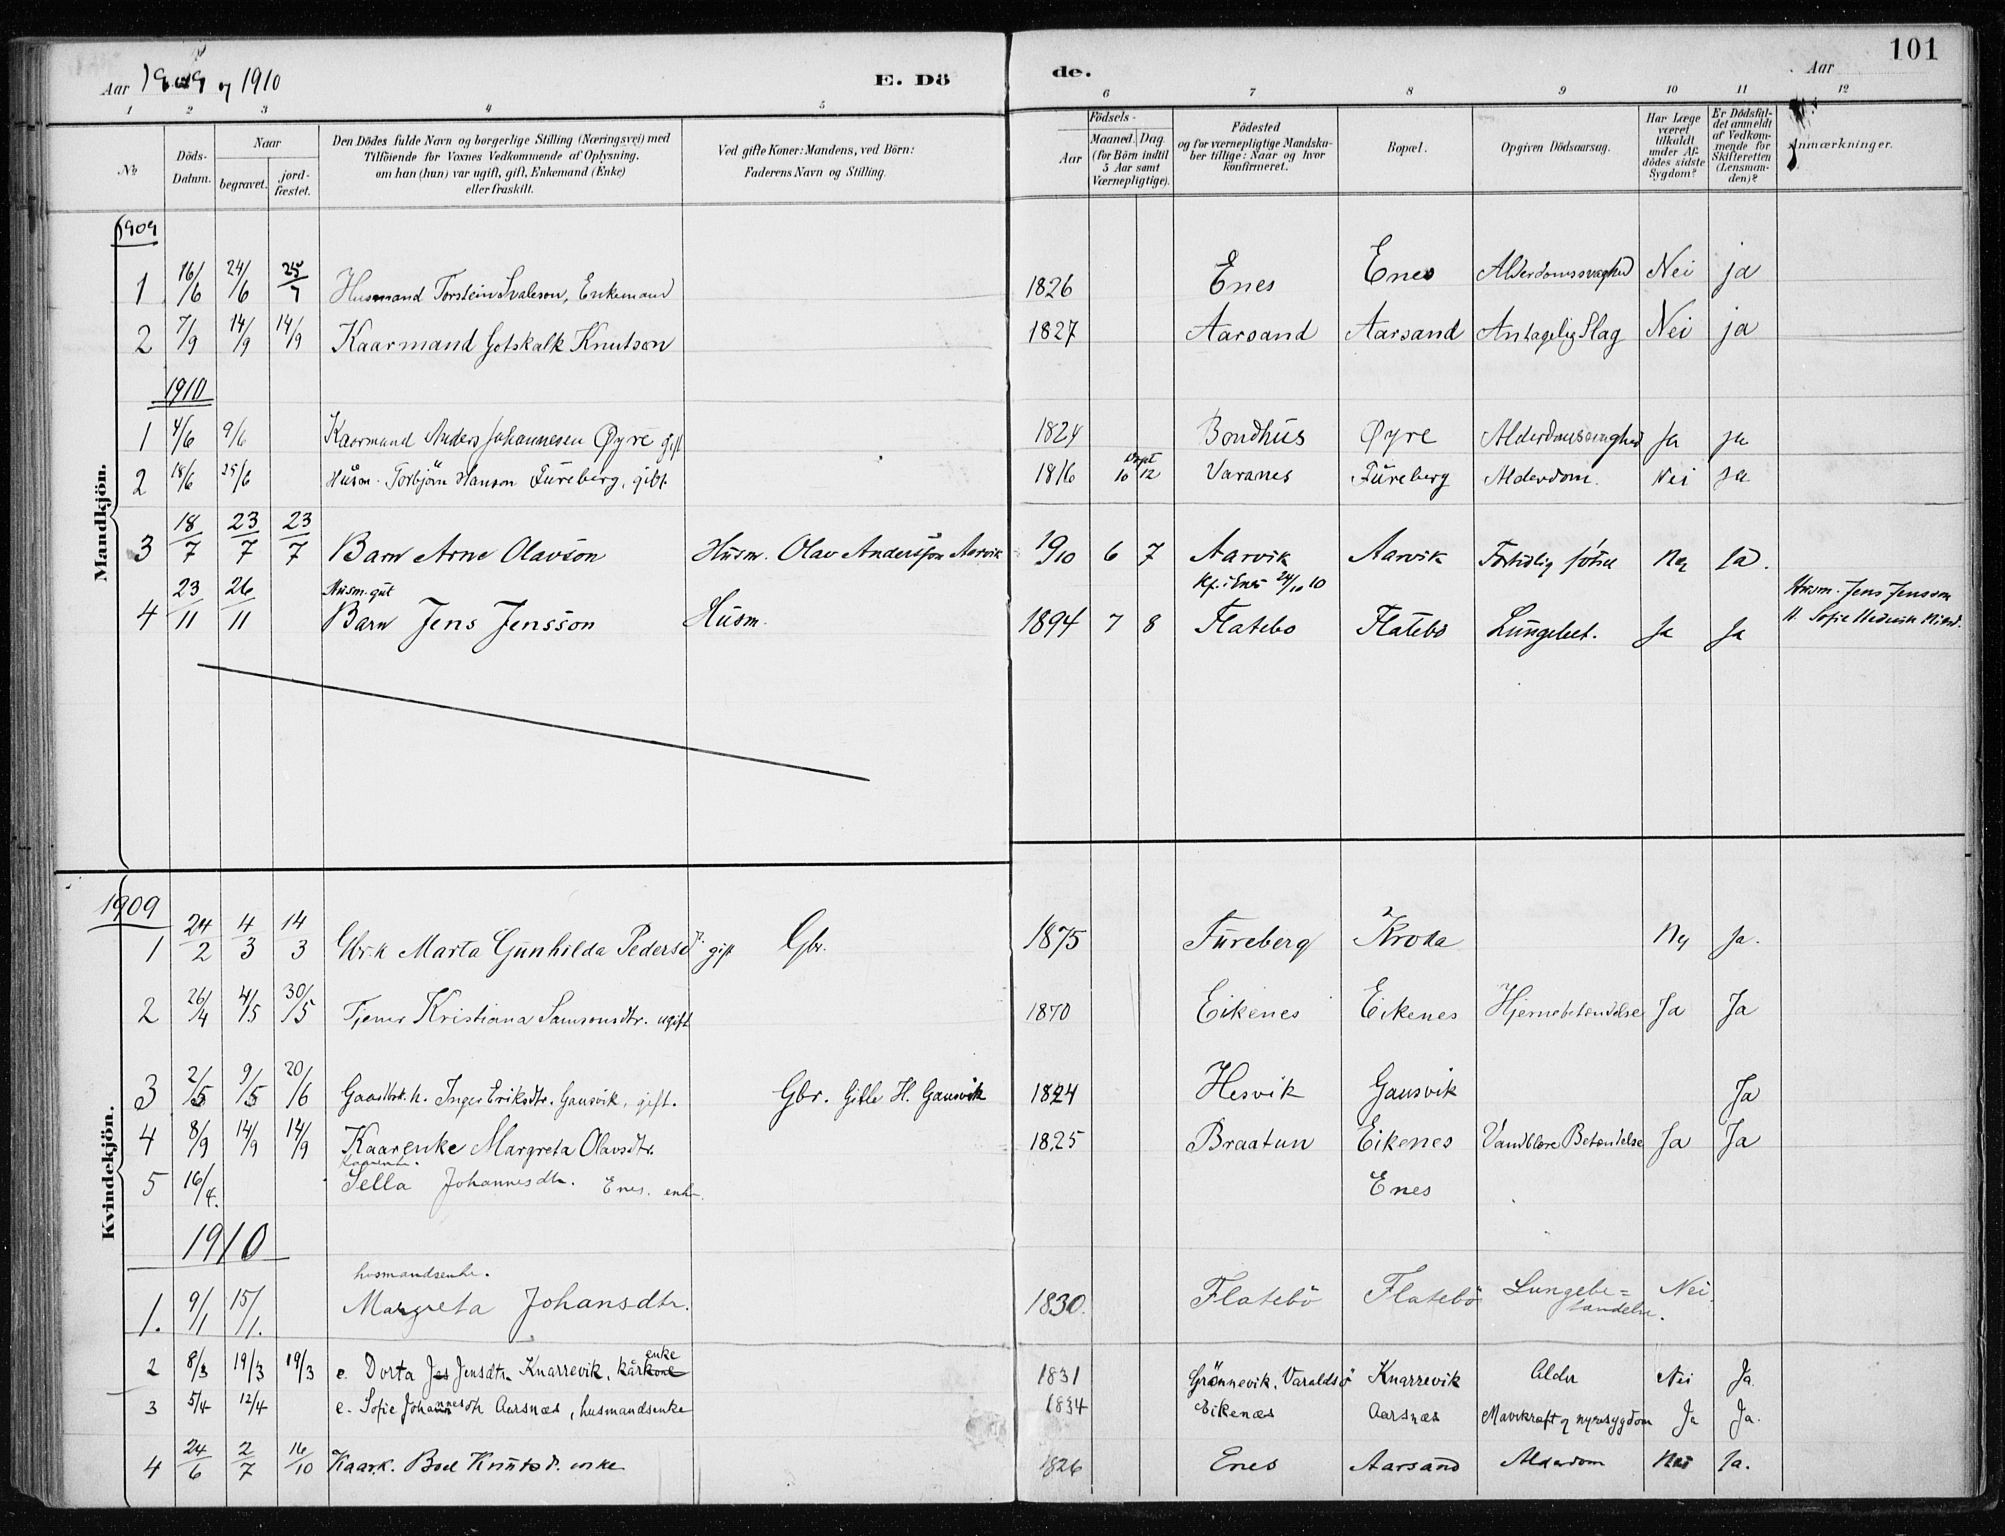 101
Aar 1909 og 1910 E. Döde. Aar
1 2 3 4 5 6 7 8 9 10 11 12
No
Döds-Datum.
Naar
begravet.
jord-fæstet.
Den Dödes fulde Navn og borgerlige Stilling (Næringsvei) med
Tilföiende for Voxnes Vedkommende af Oplysning.
om han (hun) var ugift, gift, Enkemand (Enke)
eller fraskilt.
Ved gifte Koner: Mandens, ved Börn:
Faderens Navn og Stilling.
Födsels-
Aar
Maaned. Dag.
(for Börn indtil
5 Aar samt
Værnepligtige).
Födested
og for værnepligtige Mandska-
ber tillige: Naar og hvor
konfirmeret.
Bopæl.
Opgiven Dödsaarsag.
Har Læge
været
tilkaldt
under Af-
dödes sidste
Sygdom?
Er Dödsfal-
det anmeldt
af Vedkom-
mende for
Skifteretten
(Lensman-
den)?
Anmærkninger.
Mandkjön.
1909
1 16/6 24/6 25/7 Husmand Torstein Svaleson, Enkemand 1826 Enes Enes Alderdomssvaghed Nei ja
2 7/9 14/9 14/9 Kaarmand Gotskalk Knutson 1827 Aarsand Aarsand Antagelig Slag Nei ja
1910
1 4/6 9/6 Kaarmand Anders Johannesen Øyre gift 1824 Bondhus Øyre Ja ja
2 18/6 25/6 Husm. Torbjörn Hanson Fureberg, gift. 1816 10 12 Varanes Fureberg Alderdom. Nei Ja
3 18/7 23/7 23/7 Barn Arne Olavson Husm. Olav Andersson Aarvik 19/10 6 7 Aarvik Aarvik Fortidlig födsel Nej Ja.
Husm. gut Kf. i Enes 24/10 10 Husm. Jens Jensson
4 23/11 26/11 Barn Jens Jensson Husm. 1894 7 8 Flatebo Flatebö Lungebet. Ja Ja H. Sofie
Kvindekjön.
1909
1 24/2 4/3 14/3 Gbr.k Marta Gunhilda Pedersd. gift Gbr. 1875 Fureberg Kroka Nej Ja.
2 26/4 4/5 30/5 Tjener Kristiana Samsonsdtr. ugift 1870 Eikenes Eikenes Hjernebetændelse Ja Ja
3 2/5 9/5 20/6 Gaardbrk. Inger Eriksdtr. Gausvik, gift. Gbr. Gitle H. Gausvik 1824 Hesvik Gausvik Ja
4 8/9 14/9 14/9 Kaarenke Margreta Olavsdtr. 1825 Braatun Eikenes Vandblære Betændelse Ja Ja
Kaarenke.
5 16/4. Sella Johannesdtr. Enes. enke. Enes
1910
husmandsenke.
1. 9/1 15/1. Margreta Johansdtr. 1830. Flatebö Flatebö Lungebe=tændelse. Nei.
2 8/3 19/3 19/3 e. Dorta Jensdtr. Knarrevik, kårkone enke 1831 Grönnevik, Varaldsö Knarrevik Alder Nei Ja
3 5/4 12/4 e. Sofie Johannesdtr Aarsnæs, husmandsenke 1834 Eikenæs Aarsnæs Mavekræft og nyresygdom Ja Ja.
4 24/6 2/7 16/10 Kaark. Boel Knutsd. enke 1826 Enes Aarsand Alderdom Nei Ja.